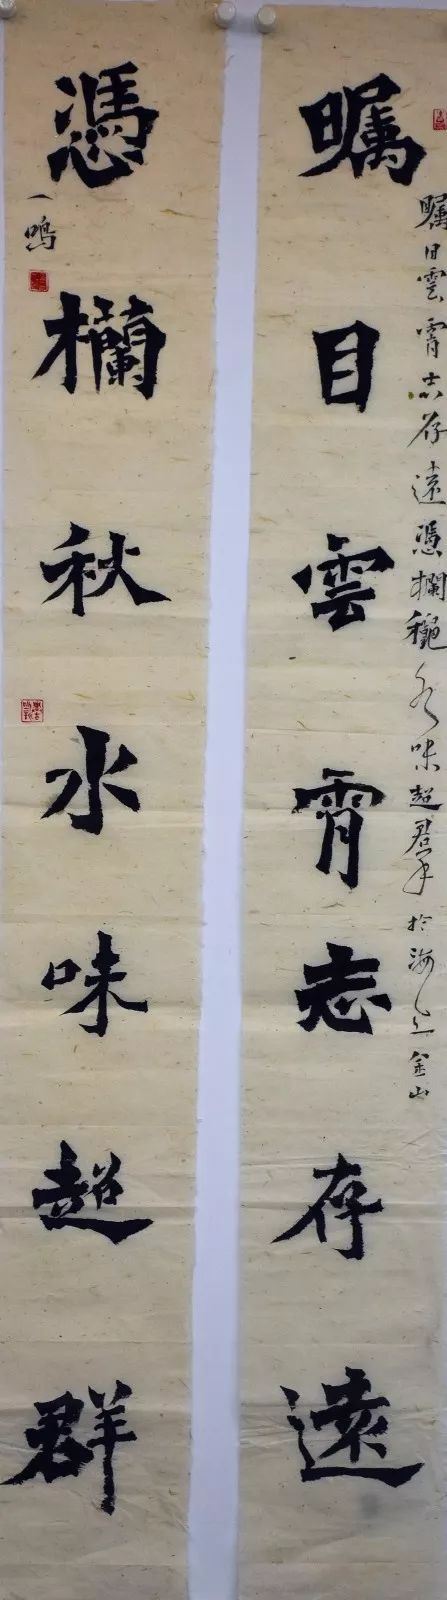 矚目雲霄志存遠
矚目雲霄志存遠憑欄穐水味超羣於海上金山
憑欄秋水味超群
一鳴